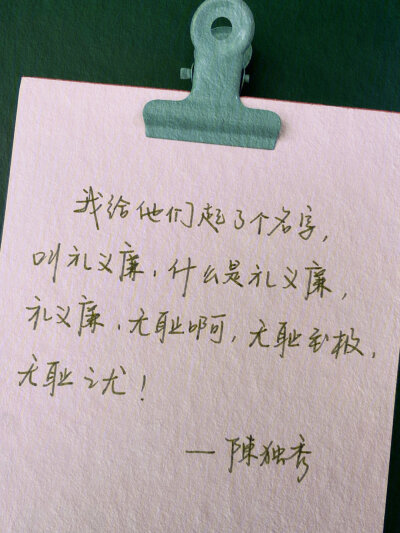 我给他们起了个名字，
叫礼义廉，什么是礼义廉，
礼义廉，无耻啊，无耻至极，
无耻之尤！
—陳独秀